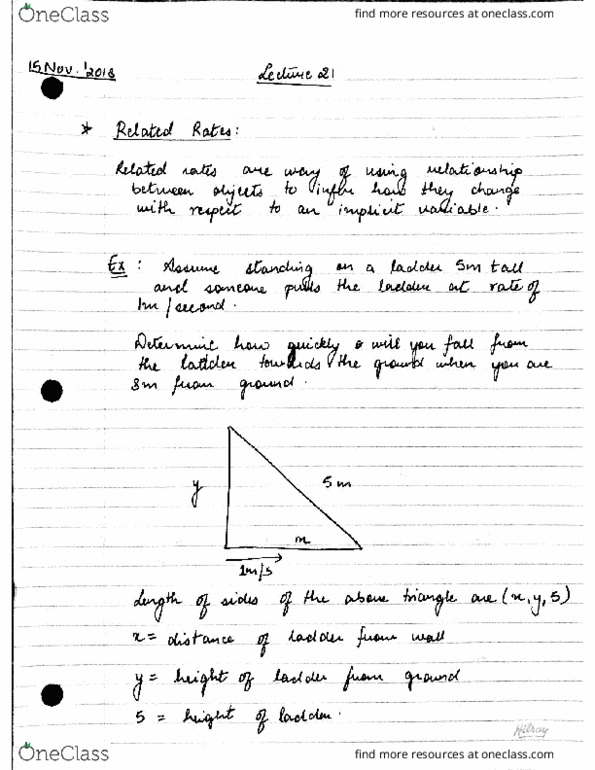 OneClass
find more resources at oneclass.com
15 Nov.' 2018
Lecture 21
* Related Rates:
Related rates are way of using relationship
between objects to infer how they change
with respect to an implicit variable.
Ex : Assume standing on a ladder 5m tall
and someone pulls the ladder at rate of
1m/second.
Determine how quickly will you fall from
the ladder towards the ground when you are
3m from ground.
y
5m
x
1m/s
Length of sides of the above triangle are (x, y, 5)
x = distance of ladder from wall
y = height of ladder from ground
5 = height of ladder.
Hilroy
OneClass
find more resources at oneclass.com